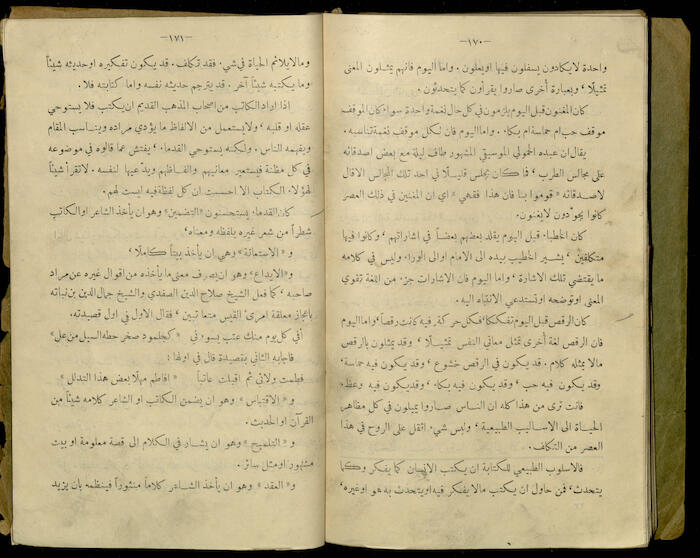 — ١٧٠ —
واحدة لايكادون يسفلون فيها اويعلون . واما اليوم فانهم يمثلون المعنى
تمثيلًا ، وبعبارة أخرى صاروا يقرأون كما يتحدثون .
كان المغنون قبل اليوم يلزمون في كل حال نغمة واحدة سواء كان الموقف
موقف حب ام حماسة ام بكاء . واما اليوم فان لكل موقف نغمة تناسبه .
يقال ان عبده الحمولي الموسيقي المشهور طاف ليلة مع بعض اصدقائه
على مجالس الطرب ، فما كان يجلس قليلًا في احد تلك المجالس الا قال
لاصدقائه « قوموا بنا فان هذا فقهي » اي ان المغنين في ذلك العصر
كانوا يجوّدون لايغنون .
كان الخطباء قبل اليوم يقلد بعضهم بعضاً في اشاراتهم ، وكانوا فيها
متكلفين ، يشير الخطيب بيده الى الامام او الى الوراء وليس في كلامه
ما يقتضي تلك الاشارة ، واما اليوم فان الاشارات جزء من اللغة تقوي
المعنى اوتوضحه اوتستدعي الانتباه اليه .
كان الرقص قبل اليوم تفككا ، فكل حركة فيه كانت رقصاً ، واما اليوم
فان الرقص لغة أخرى تمثل معاني النفس تمثيلًا ، وقد يمثلون بالرقص
مالا يمثله كلام . قد يكون في الرقص خشوع ، وقد يكون فيه حماسة ،
وقد يكون فيه حب ، وقد يكون فيه بكاء ، وقديكون فيه وعظ .
فانت ترى من هذا كله ان الناس صاروا يميلون في كل مظاهر
الحياة الى الاساليب الطبيعية ، وليس شيء اثقل على الروح في هذا
العصر من التكلف .
فالاسلوب الطبيعي للكتابة ان يكتب الانسان كما يفكر وكما
يتحدث ، فمن حاول ان يكتب مالا يفكر فيه اويتحدث به هو اوغيره ،
— ١٧١ —
ومالايلائم الحياة في شيء . فقد تكلف . قد يكون تفكيره اوحديثه شيئاً
وما يكتبه شيئاً آخر . قد يترجم حديثه نفسه واما كتابته فلا .
اذا اراد الكاتب من اصحاب المذهب القديم ان يكتب فلا يستوحي
عقله او قلبه ، ولا يستعمل من الالفاظ ما يؤدي مراده ويناسب المقام
ويفهمه الناس . ولكنه يستوحي القدماء ، يفتش عما قالوه في موضوعه
في كل مظنة فيستعير معانيهم والفاظهم ويدّعيها لنفسه . لا تقرأ شيئاً
لهؤلاء الكتاب الا احسست ان كل لفظة فيه ليست لهم .
كان القدماء يستحسنون « التضمين » وهو ان يأخذ الشاعر او الكاتب
شطراً من شعر غيره بلفظه ومعناه ،
و « الاستعانة » وهي ان يأخذ بيتاً كاملًا ،
و « الايداع » وهو ان يصرف معنى ما يأخذه من اقوال غيره عن مراد
صاحبه ، كما فعل الشيخ صلاح الدين الصفدي والشيخ جمال الدين بن نباته
باعجاز معلقة امرئ القيس متعاتبين ، فقال الاول في اول قصيدته .
أفي كل يوم منك عتب يسوءني « كجلمود صخر حطه السيل من عل »
فاجابه الثاني بقصيدة قال في اولها :
فطمت ولائي ثم اقبلت عاتباً « افاطم مهلًا بعض هذا التدلل »
و « الاقتباس » وهو ان يضمن الكاتب او الشاعر كلامه شيئاً من
القرآن او الحديث .
و « التلميح » وهو ان يشار في الكلام الى قصة معلومة او بيت
مشهور او مثل سائر .
و « العقد » وهو ان يأخذ الشاعر كلاماً منثوراً فينظمه بان يزيد